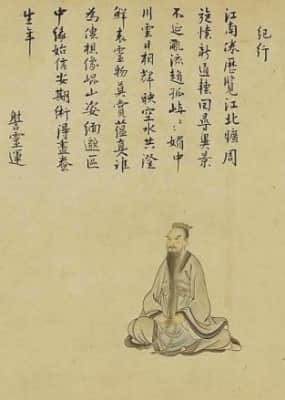 紀行
江南倦歷覽江北曠周
旋懷新道轉迥尋異景
不延亂流趨孤嶼〻媚中
川雲日相輝映空水共澄
鮮表靈物莫賞蘊真誰
為傳想像崐山姿緬邈區
中緣始信安期術得盡養
生年
謝靈運